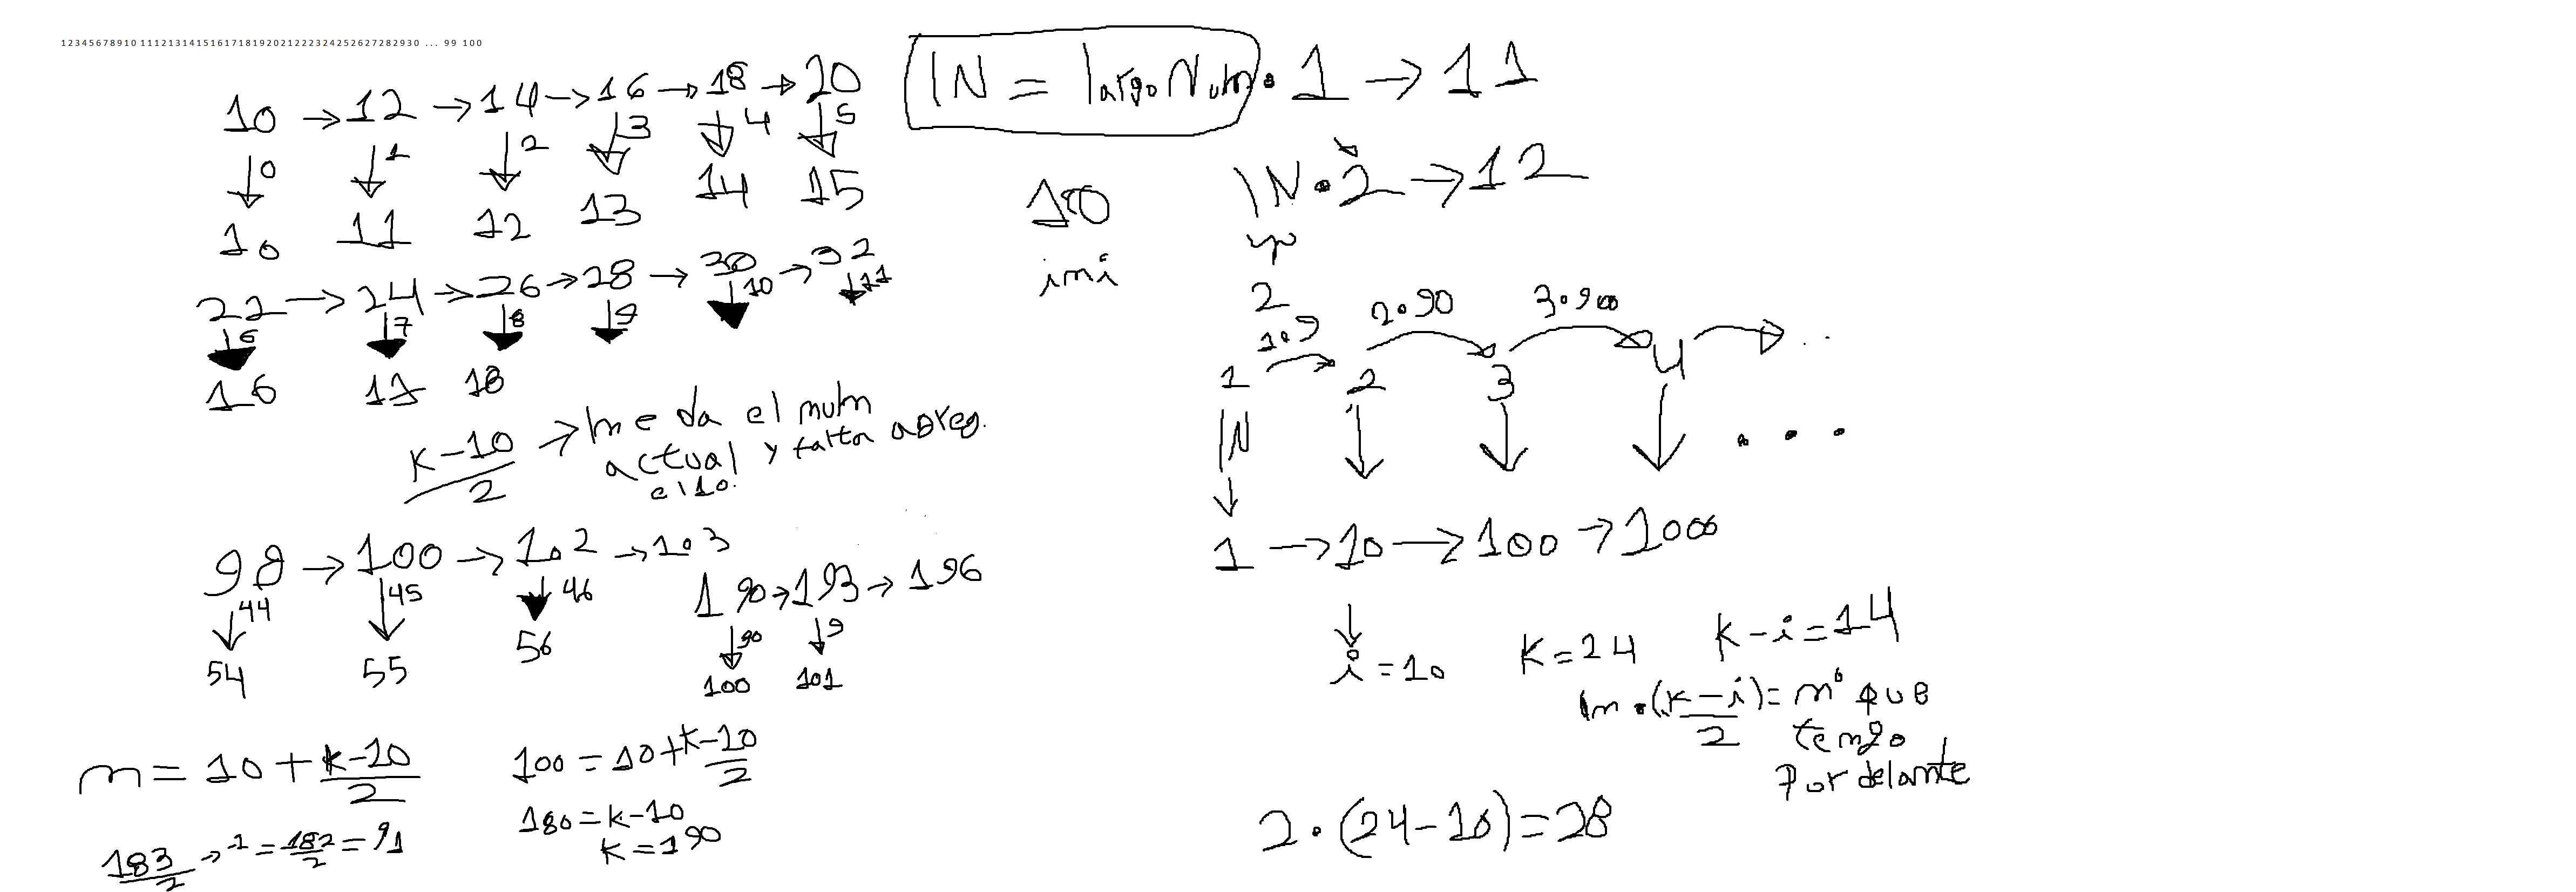 1 2 3 4 5 6 7 8 9 10 11 12 13 14 15 16 17 18 19 20 21 22 23 24 25 26 27 28 29 30 ... 99 100
10 → 12 → 14 → 16 → 18 → 20
0 1 2 3 4 5
10 11 12 13 14 15
22 → 24 → 26 → 28 → 30 → 32
6 7 8 9 10 11
16 17 18
k-10 → me da el num
2 actual y falta agreg.
el 10.
98 → 100 → 102 → 103
44 45 46
54 55 56
190 → 193 → 196
90 9
100 101
n = 10 + k-10
2
183 → -1 = 182 = 91
2 2
100 = 10 + k-10
2
180 = k-10
k = 190
lN = largoNum · 1 → 11
lN · 2 → 12
100
ini
2
1·9 2·90 3·900
1 2 3 4 ..
lN ...
1 → 10 → 100 → 1000
i = 10 k = 24 k - i = 14
ln · (k - i) = nº que
2 tengo
por delante
2 · (24 - 10) = 28